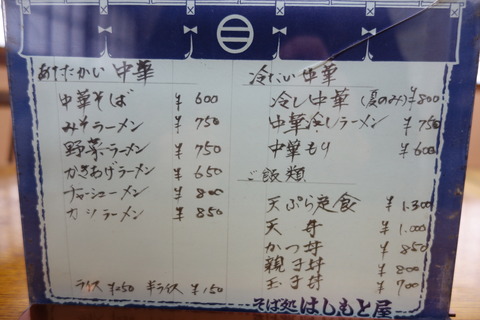 あたたかい中華
中華そば ¥600
みそラーメン ¥750
野菜ラーメン ¥750
かきあげラーメン ¥650
チャーシューメン ¥800
カツラーメン ¥850
ライス ¥250 半ライス ¥150
冷たい中華
冷し中華(夏のみ) ¥800
中華冷しラーメン ¥750
中華もり ¥600
ご飯類
天ぷら定食 ¥1.300
天丼 ¥1.000
かつ丼 ¥850
親子丼 ¥800
玉子丼 ¥700
そば処 はしもと屋